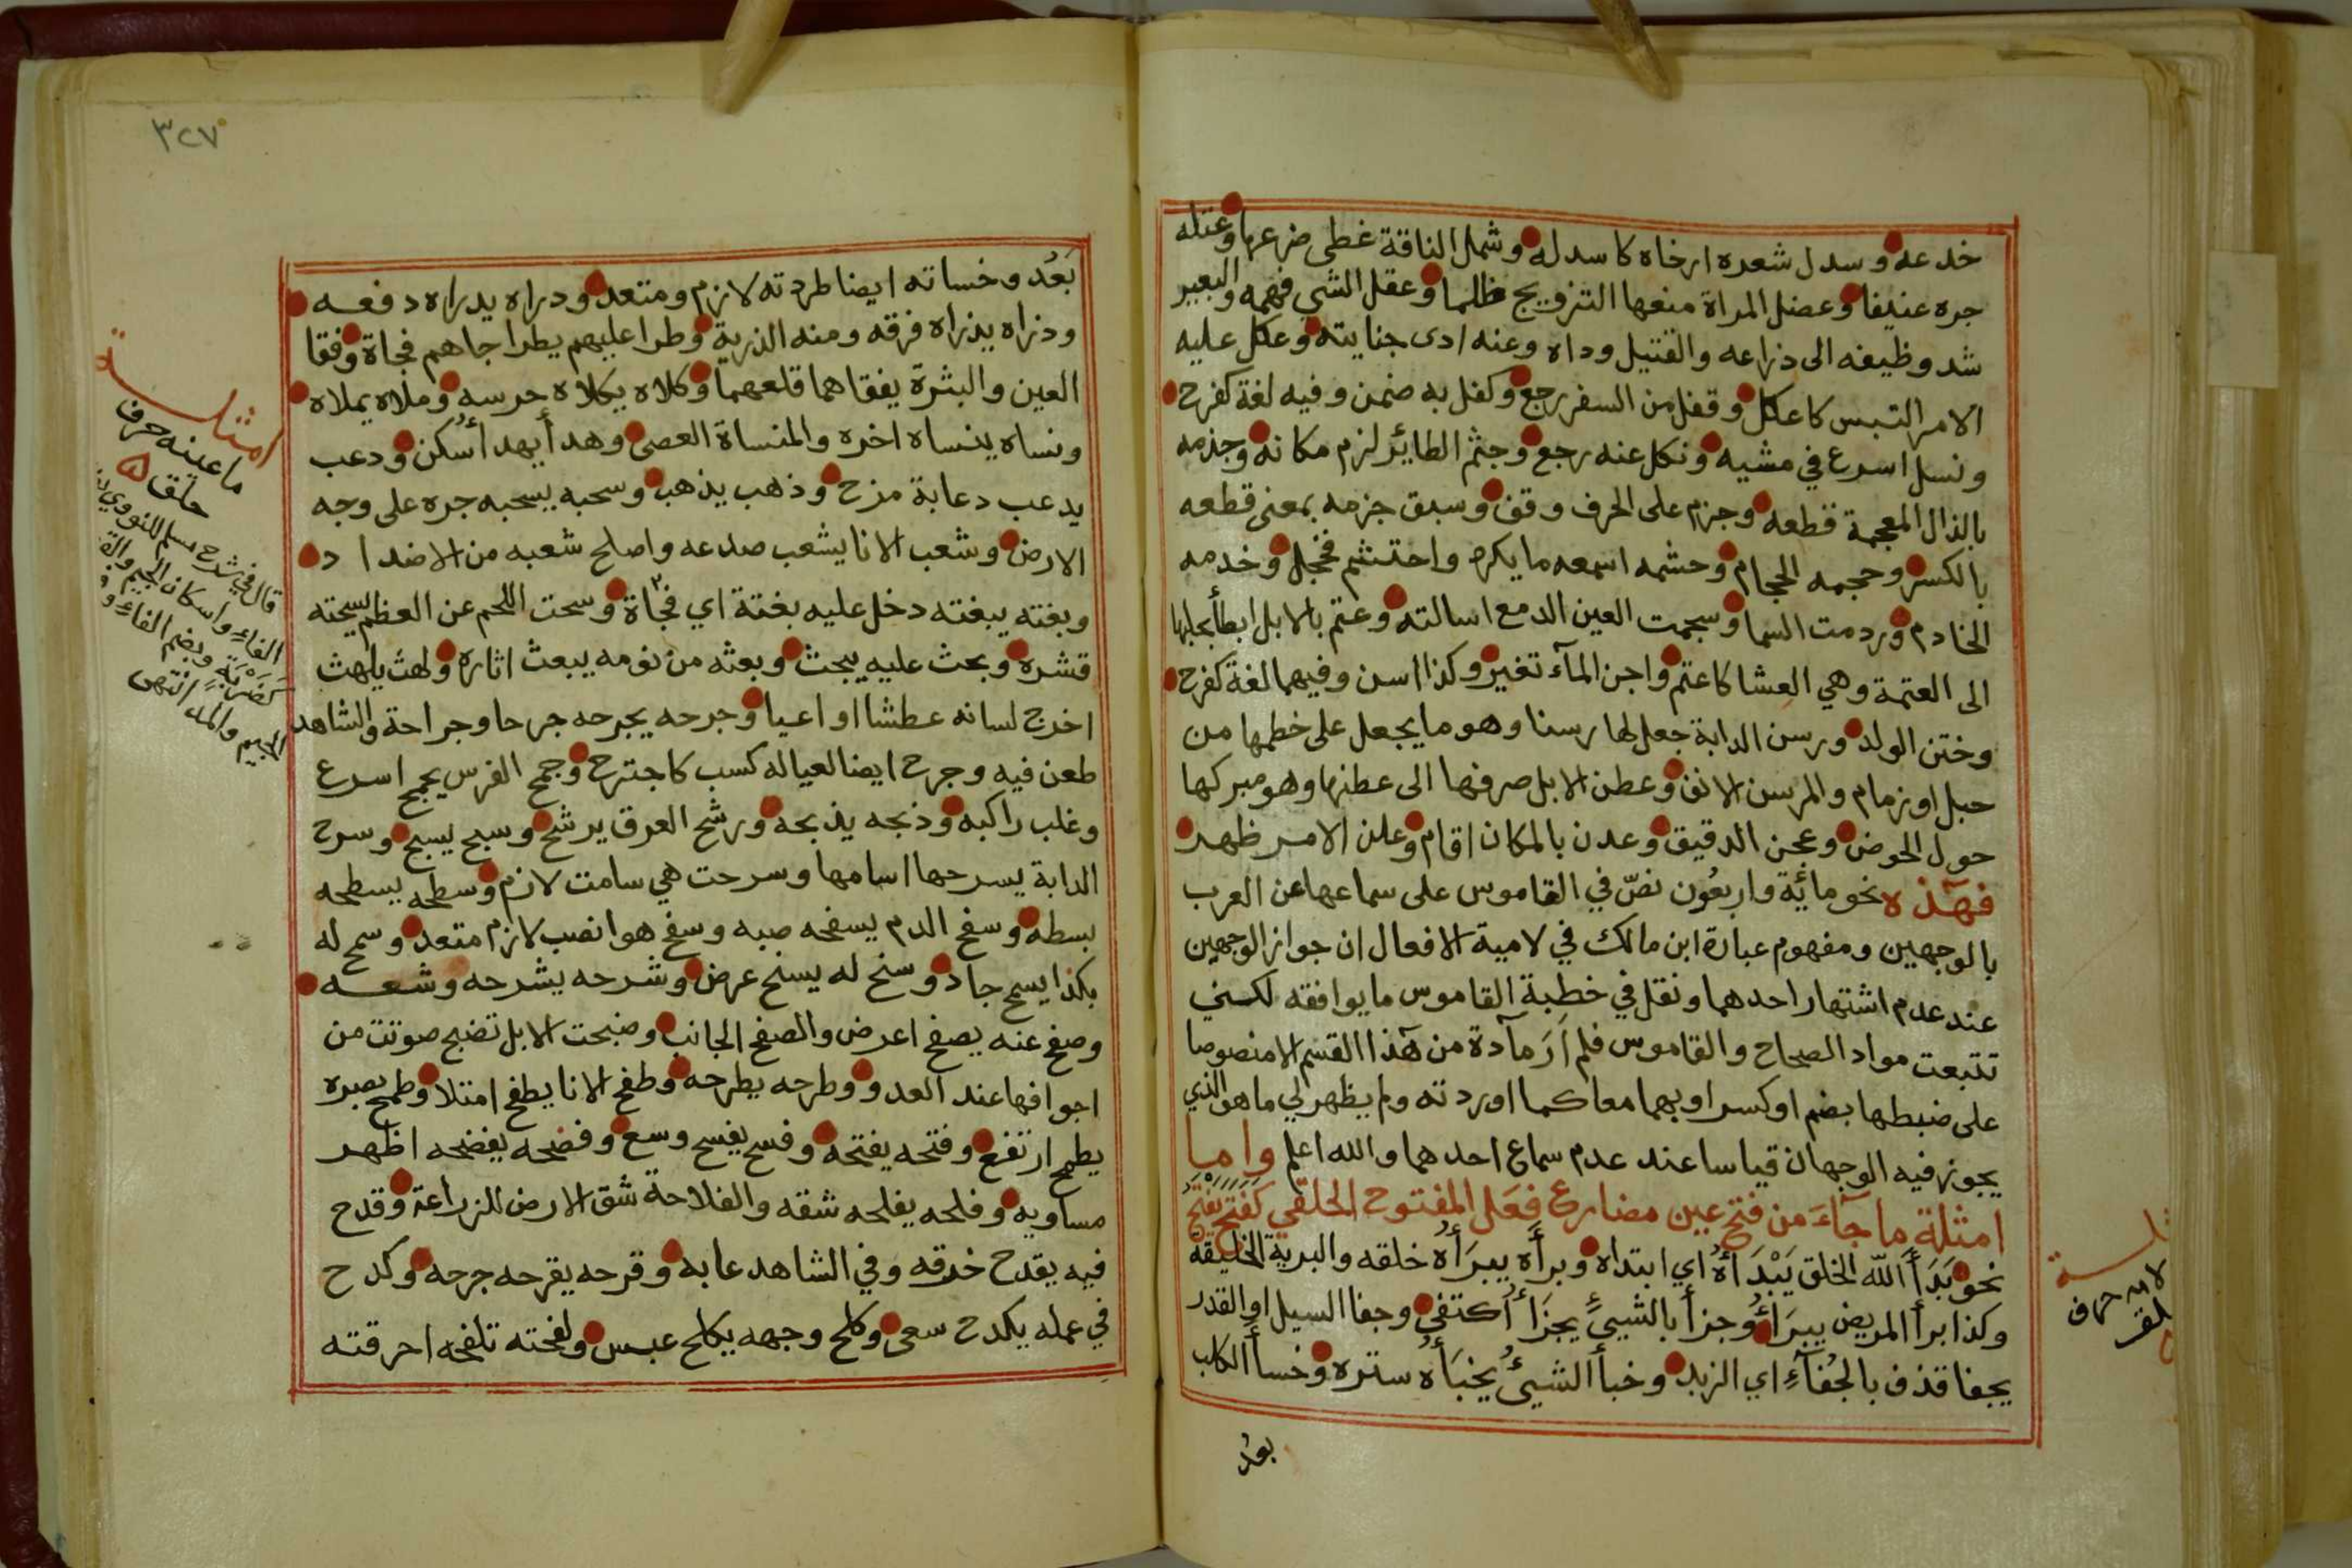 خدعه وسدل شعره ارخاه كاسدله وشمل الناقة غطى ضرعها وعتله
جره عنيفا وعضل المراة منعها التزويج ظلما وعقل الشي فهمه والبعير
شد وظيفه الى ذراعه والقتيل وداه وعنه ادى جنايته وعكل عليه
الامر التبس كاعكل وقفل من السفر رجع وكفل به ضمن وفيه لغة كفرح
ونسل اسرع في مشيه ونكل عنه رجع وجثم الطائر لزم مكانه وجذمه
بالذال المعجمة قطعه وجزم على الحرف وقف وسبق جزمه بمعنى قطعه
بالكسر وحجمه الحجام وحشمه اسمعه ما يكره واحتشم فخجل وخدمه
الخادم وردمت السما وسجمت العين الدمع اسالته وعتم بالابل ابطأ بحلبها
الى العتمة وهي العشا كاعتم واجن المآء تغير وكذا اسن وفيهما لغة كفرح
وختن الولد ورسن الدابة جعل لها رسنا وهو ما يجعل على خطمها من
حبل او زمام والمرسن الانف وعطن الابل صرفها الى عطنها وهو مبركها
حول الحوض وعجن الدقيق وعدن بالمكان اقام وعلن الامر ظهر
فهٓذه نحو مائة واربعُون نصّ في القاموس على سماعها عن العرب
بالوجهين ومفهوم عبارة ابن مالك في لامية الافعال ان جواز الوجهين
عند عدم اشتهار احدهما ونقل في خطبة القاموس ما يوافقه لكني
تتبعت مواد الصحاح والقاموس فلم اَرَ مآدة من هٓذا القسم الا منصوصا
على ضبطها بضم او كسر او بهما معا كما اوردته ولم يظهر لي ما هو الذي
يجوز فيه الوجهان قياسا عند عدم سماع احدهما والله اعلم واما
امثلة ما جآءَ من فتح عين مضارع فعَل المفتوح الحلقي كفتح يفتح
نحو بَدَأَ الله الخلق يَبْدَأهُ اي ابتداه وبرأَه يبرَأُه خلقه والبرية الخليقة
وكذا برأ المريض يبرَاءُ وجزأ بالشيئِ يجزَأُ اُكتفى وجفا السيل او القدر
يجفا قذف بالجُفآءِ اي الزبد وخبأ الشيئُ يخبَأُه ستره وخسأ الكلب
بعُد
لامه حرف
٣٢٧
بَعُد وخساته ايضا طردته لازم ومتعد ودراه يدراه دفعه
وذراه يذراه فرقه ومنه الذرية وطرا عليهم يطرا جاهم فجاة وفقا
العين والبثرة يفقاهما قلعهما وكلاه يكلاه حرسه وملاه يملاه
ونساه ينساه اخره والمنساة العصى وهدأ يهدأ أسكن ودعب
يدعب دعابة مزح وذهب يذهب وسحبه يسحبه جره على وجه
الارض وشعب الانا يشعب صدعه واصلح شعبه من الاضداد
وبغته يبغته دخل عليه بغتة اي فجاة وسحت اللحم عن العظم يسحته
قشره وبحث عليه يبحث وبعثه من نومه يبعث اثاره ولهث يلهث
اخرج لسانه عطشا او اعيا وجرحه يجرحه جرحا وجراحة والشاهد
طعن فيه وجرح ايضا لعياله كسب كاجترح وجمح الفرس يجمح اسرع
وغلب راكبه وذبحه يذبحه ورشح العرق يرشح وسبح يسبح وسرح
الدابة يسرحها اسامها وسرحت هي سامت لازم وسطحه يسطحه
بسطه وسفح الدم يسفحه صبه وسفح هو انصب لازم متعد وسمح له
بكذا يسمح جاد وسنح له يسنح عرض وشرحه يشرحه وشعه
وصفح عنه يصفح اعرض والصفح الجانب وضبحت الابل تضبح صوتت من
اجوافها عند العدو وطرحه يطرحه وطفح الانا يطفح امتلا وطمح بصره
يطمح ارتفع وفتحه يفتحه وفسح يفسح وسع وفضحه يفضحه اظهر
مساويه وفلحه يفلحه شقه والفلاحة شق الارض للزراعة وقدح
فيه يقدح خرقه وفي الشاهد عابه وقرحه يقرحه جرحه وكدح
في عمله يكدح سعى وكلح وجهه يكلح عبس ولفحته تلفحه احرقته
امثلة
ما عينه حرف
حلق
قال في شرح مسلم للنووي
الفاءِ واسكان الجيم
كَضَرْبَةٍ وبضم الفاءِ
الجيم والمد انتهى